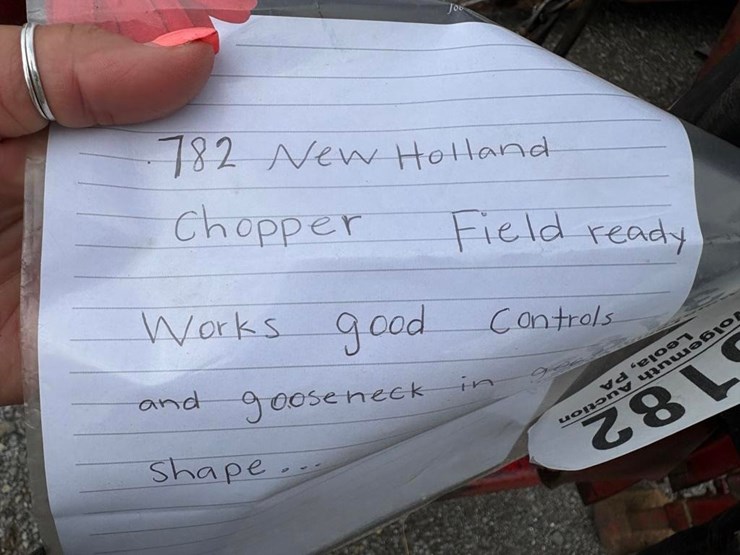 782 New Holland
Chopper Field ready
Works good Controls
and gooseneck in
shape...
olgemuth Auction
Leola, PA
5182